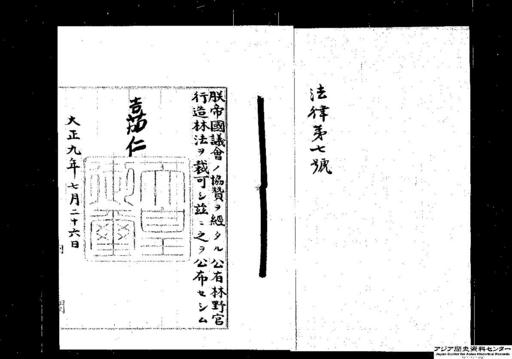 法律第七號
朕帝國議會ノ協賛ヲ經タル公有林野官
行造林法ヲ裁可シ茲ニ之ヲ公布セシム
嘉仁
天皇
御璽
大正九年七月二十六日
アジア歴史資料センター
Japan Center for Asian Historical Records